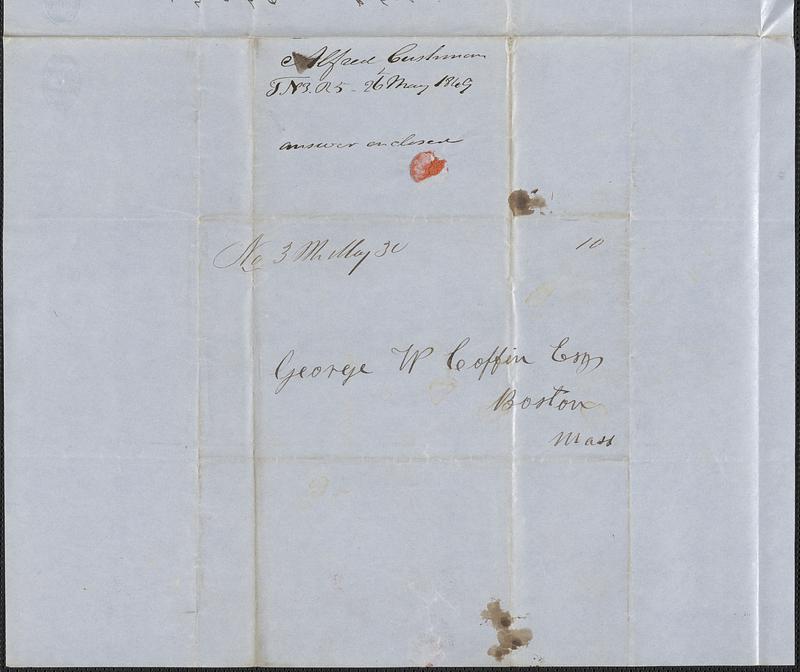 Alfred Cushman
T.N3.R5 - 26 May 1849
answer enclosed
No 3 Me May 30
10
George W Coffin Esq
Boston
Mass